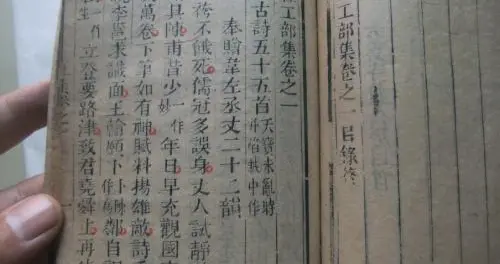 工部集卷之一目錄終
工部集卷之一
古詩五十五首 天寶未亂時
并陷賊中作
奉贈韋左丞丈二十二韻
袴不餓死儒冠多誤身丈人試靜
具陳甫昔少 一作妙 年日早充觀國
萬卷下筆如有神賦料揚雄敵詩
李邕求識面王翰願卜 鄰自
作 立登要路津致君堯舜上再
卷之一 一